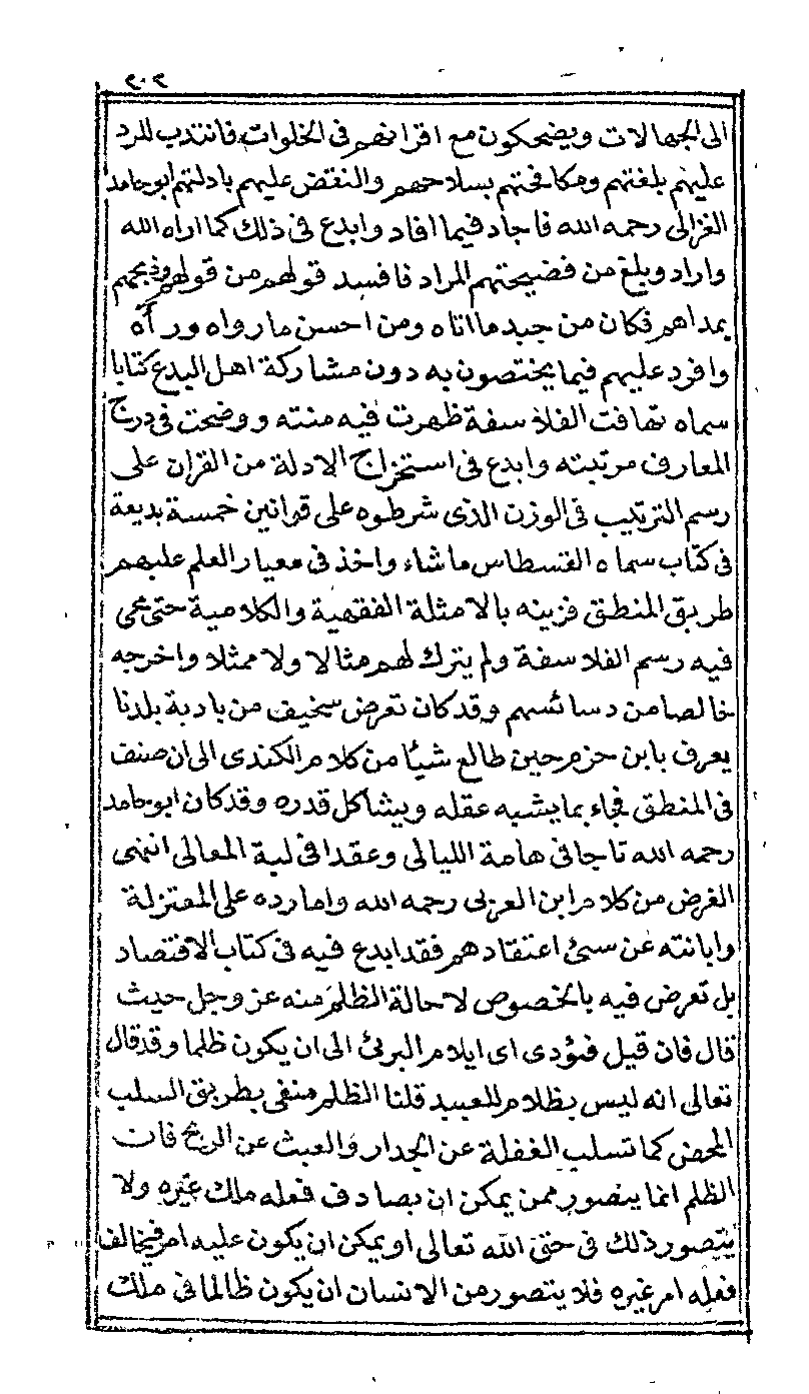 ٢٠٢
الى الجهالات ويضحكون مع اقرانهم فى الخلوات فانتدب للرد
عليهم بلغتهم ومكافحتهم بسلاحهم والنقض عليهم بادلتهم ابوحامد
الغزالى رحمه الله فاجاد فيما افاد وابدع فى ذلك كما اراه الله
واراد وبلغ من فضيحتهم المراد فافسد قولهم من قولهم وذبحهم
بمداهم فكان من جيد ما اتاه ومن احسن ما رواه ورأه
وافرد عليهم فيما يختصون به دون مشاركة اهل البدع كتابا
سماه تهافت الفلاسفة ظهرت فيه منته ووضحت فى درج
المعارف مرتبته وابدع فى استخراج الادلة من القران على
رسم الترتيب فى الوزن الذى شرطوه على قوانين خمسة بديعة
فى كتاب سماه القسطاس ما شاء واخذ فى معيار العلم عليهم
طريق المنطق فزينه بالامثلة الفقهية والكلامية حتى محى
فيه رسم الفلاسفة ولم يترك لهم مثالا ولا ممثلا واخرجه
خالصا من دسائسهم وقد كان تعرض سخيف من بادية بلدنا
يعرف بابن حزم حين طالع شيأ من كلام الكندى الى ان صنف
فى المنطق فجاء بما يشبه عقله ويشاكل قدره وقد كان ابوحامد
رحمه الله تاجا فى هامة الليالى وعقدا فى لبة المعالى انتهى
الغرض من كلام ابن العربى رحمه الله واما رده على المعتزلة
وابانته عن سيئ اعتقادهم فقد ابدع فيه فى كتاب الاقتصاد
بل تعرض فيه بالخصوص لاحالة الظلم منه عز وجل حيث
قال فان قيل فيؤدى اى ايلام البرئ الى ان يكون ظلما وقد قال
تعالى انه ليس بظلام للعبيد قلنا الظلم منفى بطريق السلب
المحض كما تسلب الغفلة عن الجدار والعبث عن الريح فان
الظلم انما يتصور ممن يمكن ان يصادف فعله ملك غيره ولا
يتصور ذلك فى حق الله تعالى او يمكن ان يكون عليه امر فيخالف
فعله امر غيره فلا يتصور من الانسان ان يكون ظالما فى ملك